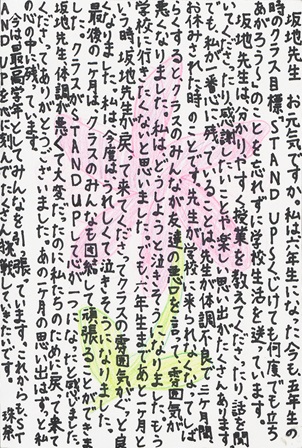 坂地先生、お元気ですか。私は六年生になった今も、五年生の
時のクラス目標、STAND UP〜くじけても何度でも立ち
あがろう〜のことを忘れずに学校生活を送っています。
坂地先生は、分かりやすく授業を教えてくださったり、話を聞
いてくださったり感謝したいことや楽しい思い出がたくさんあります。
でも、私が一番心に残っていることは、先生が体調不良で二ヶ月間
お休みされた時のことです。先生が学校に来られなくなってしば
らくするとクラスのみんなが友達の悪口を言い、雰囲気が
悪くなりました。私はどうしようと泣きそうになりました。もう
学校に行きたくないと思いました。でも、六年生まであと一ヶ月と
いう時、坂地先生が戻って来てくださってクラスの雰囲気がぐっと良
くなりました。私は、今度はうれしくて泣きそうになりました。
最後の一ヶ月は、クラスのみんなも団結して頑張ることができま
した。クラスがSTAND UPし、心が一つになったと感じました。
坂地先生、体調が悪くて大変だったのに私たちのために戻って来て
くださってありがとうございました。あの一ヶ月の思い出はずっと私
の心の中に残っています。
今は最高学年としてみんなを引っ張っています。これからもST
AND UPを心に刻んでたくさん挑戦していきたいです。